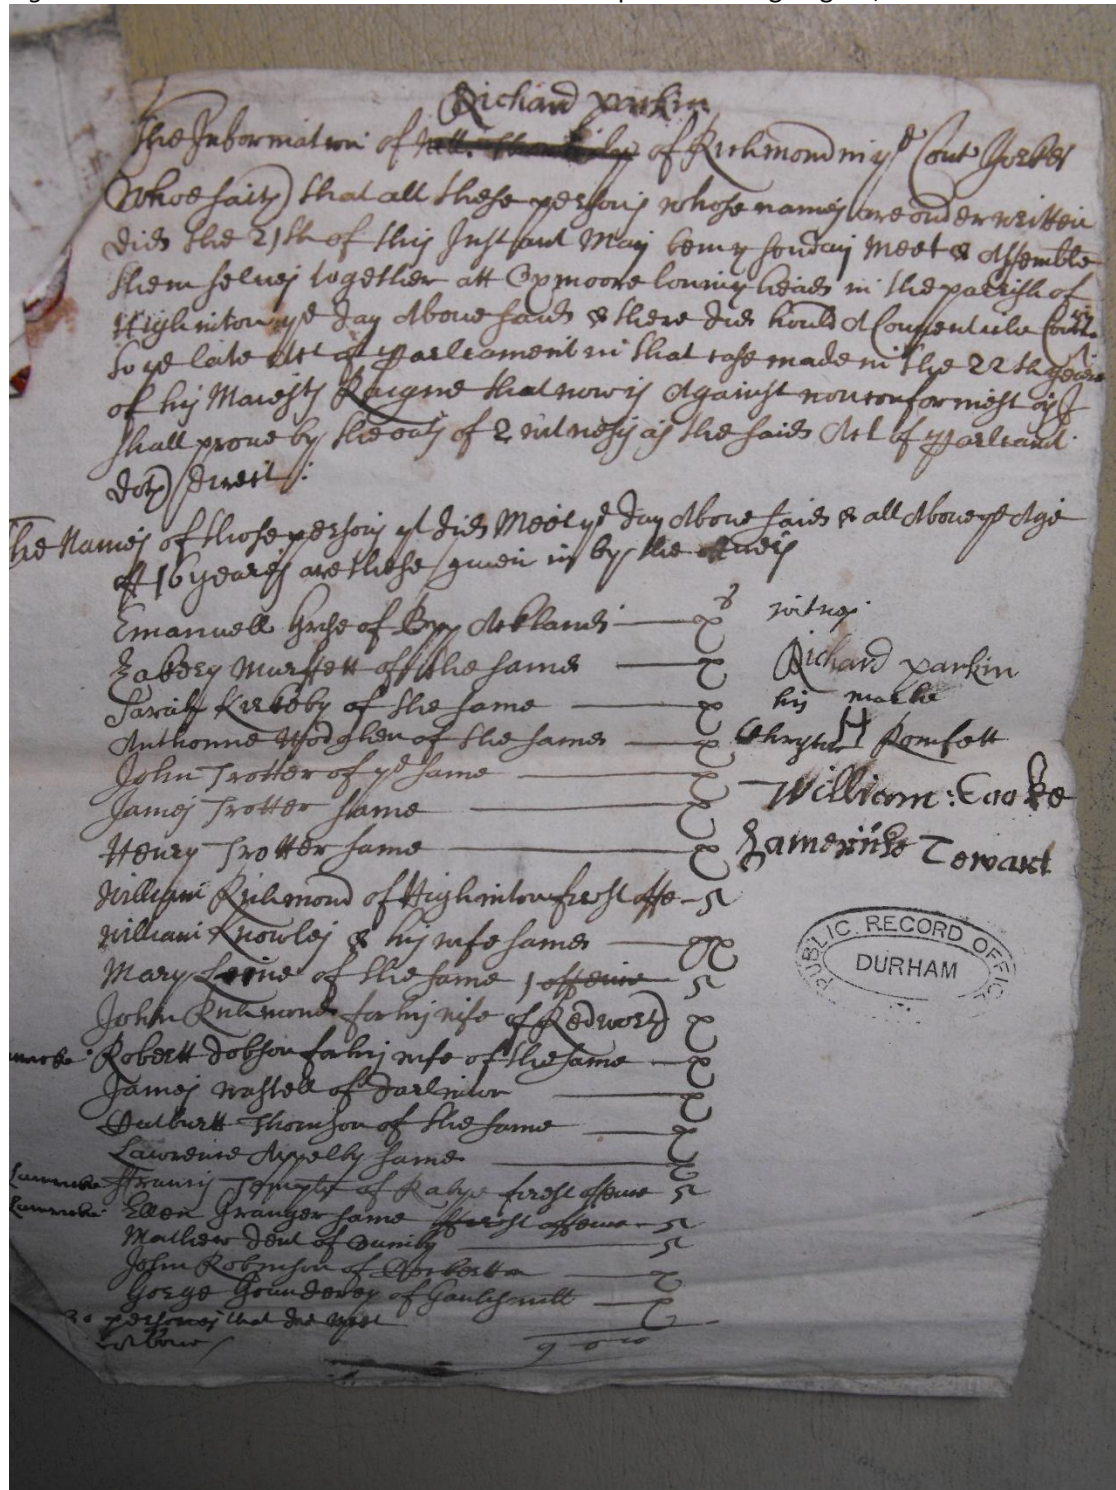 Richard parkin
The Information of of Richmond in ye Cont Yorke
Whoe saith that all these persons whose names are underwritten
did the 21th of this Instant May being sonday Meet & Assemble
them selves together att in the parish of
Highinton ye day Above said & there did hould A Conventicle
to ye late Act of Parleament in that case made in the 22th yeare
of his Maiesty Raigne that now is Against nonconformest as I
shall prove by the oath of 2 witnesses as the said Act of Parleamt
doth direct:
The Names of those persons yt did Meet ye day Above said & all Above ye Age
of 16 yeares are these given in by the
Emanuell of Bpp Ackland x
of the same x
Sarah Kirkby of the same x
Anthonne of the same x
John Trotter of ye same x
James Trotter same x
Henry Trotter same x
William Richmond of Highinton first offe 5
William Knowles & his wife same xx
Mary of the same 1 offence 5
John Richmond for his wife of Redworth x
Robertt Dobson for his wife of the same x
James wastell of Darlinton x
Cutburtt Thomson of the same x
Lawrence Appelby same x
Francis Temple of Rabye first offence 5
Ellen Granger same first offence 5
Mathew Dent of 5
John Robinson of x
George of x
persones that did meet
witnes
Richard parkin
his marke
H Pomfett
William: Cooke
Tewart
PUBLIC RECORD OFFICE
DURHAM